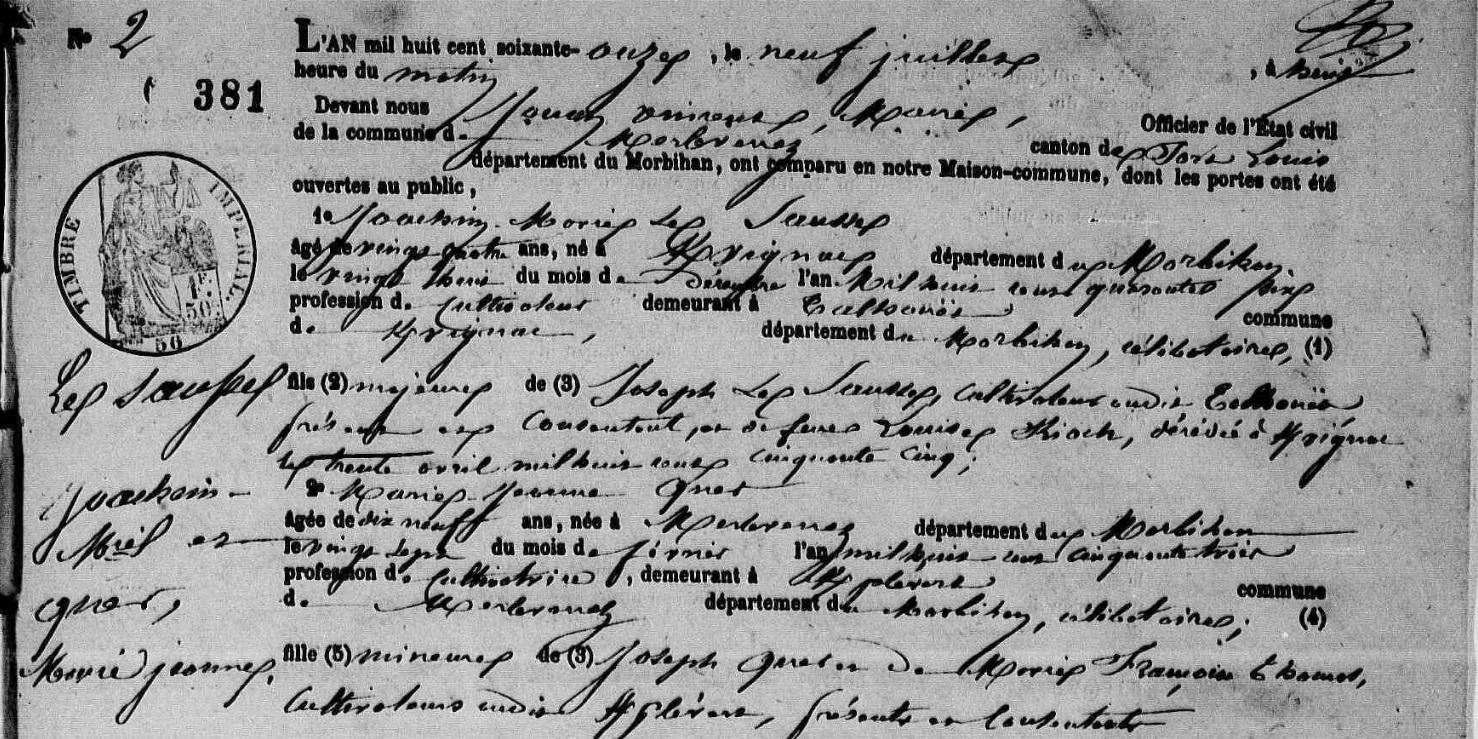 No 2
381
L'AN mil huit cent soixante-onze, le neuf juillet, à neuf
heure du matin
Devant nous Marie, Officier de l'État civil
de la commune de Merlevenez canton de Port Louis
département du Morbihan, ont comparu en notre Maison-commune, dont les portes ont été
ouvertes au public,
TIMBRE IMPERIAL.
50
1o Joachim Marie Le Sausse
âgé de vingt quatre ans, né à Kvignac département du Morbihan
le vingt huit du mois de Décembre l'an Mil huit cent quarante six
profession de Cultivateur demeurant à commune
de Kvignac, département du Morbihan, célibataire, (1)
Le Sausse
fils (2) majeur de (3) Joseph Le Sausse, Cultivateur audit
présent et Consentant, et de feue Louise, décédée à Kvignac
le trente avril mil huit cent cinquante cinq;
Joachim
Miel et
quer,
Marie jeanne,
2o Marie Jeanne quer
âgée de dix neuf ans, née à Merlevenez département du Morbihan
le vingt sept du mois de février l'an mil huit cent cinquante trois
profession de Cultivatrice, demeurant à commune
de Merlevenez département du Morbihan, célibataire; (4)
fille (5) mineure de (3) Joseph quer et de Marie Françoise Thomas,
Cultivateurs audit, présents et Consentants